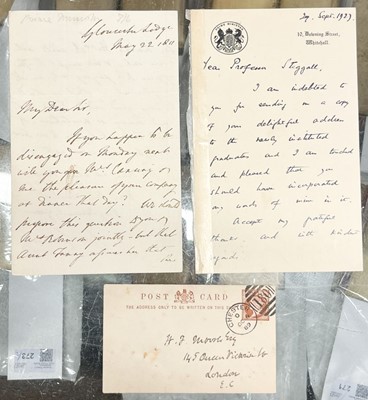 Gloucester Lodge
May 22 1811
My Dear Sir,
If you happen to be
disengaged on Monday next
will you give Mrs Canning or
me the pleasure of your company
at dinner that day? We should
propose this question to you &
Mrs Robinson jointly - but that
Aunt Fanny apprehends that
PRIME MINISTER
29. Sept. 1929
10, Downing Street,
Whitehall.
Dear Professor Steggall.
I am indebted to
you for sending me a copy
of your delightful address
to the newly instituted
graduates and I am touched
and pleased that you
should have incorporated
any words of mine in it.
Accept my grateful
thanks and with kindest
regards.
POST CARD
THE ADDRESS ONLY TO BE WRITTEN ON THIS SIDE
CHESTER
180
H. J.
145 Queen Victoria St
London
E.C